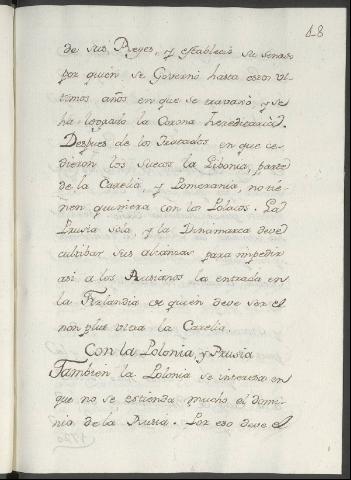 48
de sus Reyes, y estableció su senado
por quien se Governó hasta estos ul-
timos años en que se
ha logrado la Corona hereditaria.
Despues de los Tratados en que ce-
dieron los suecos la Libonia, parte
de la Carelia, y Pomerania, no tie-
nen quimera con los Polacos. La
Prusia sola, y la Dinamarca deve
cultibar sus alianzas para impedir
asi a los Rusianos la entrada en
la Finlandia de quien deve ser el
non plus ultra la Carelia.
Con la Polonia, y Prusia
Tambien la Polonia se interesa en
que no se estienda mucho el domi-
nio de la Rusia. Por eso deve el